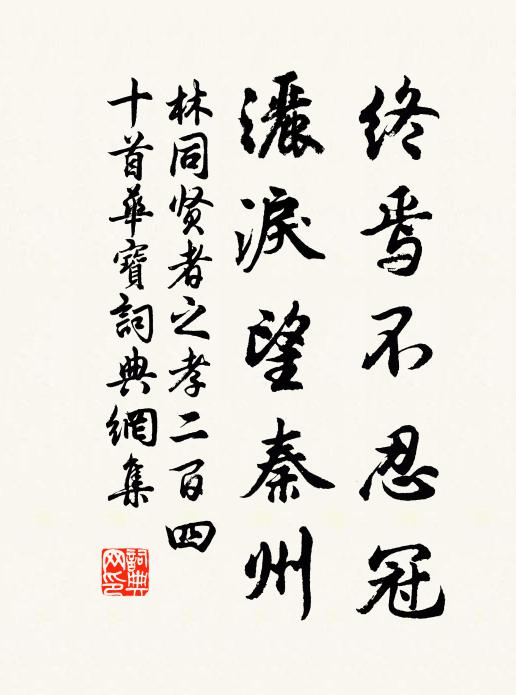 終焉不忍冠
灑淚望秦州
林同賢者之孝二百四
十首華寶詞典網集
詞典
网印